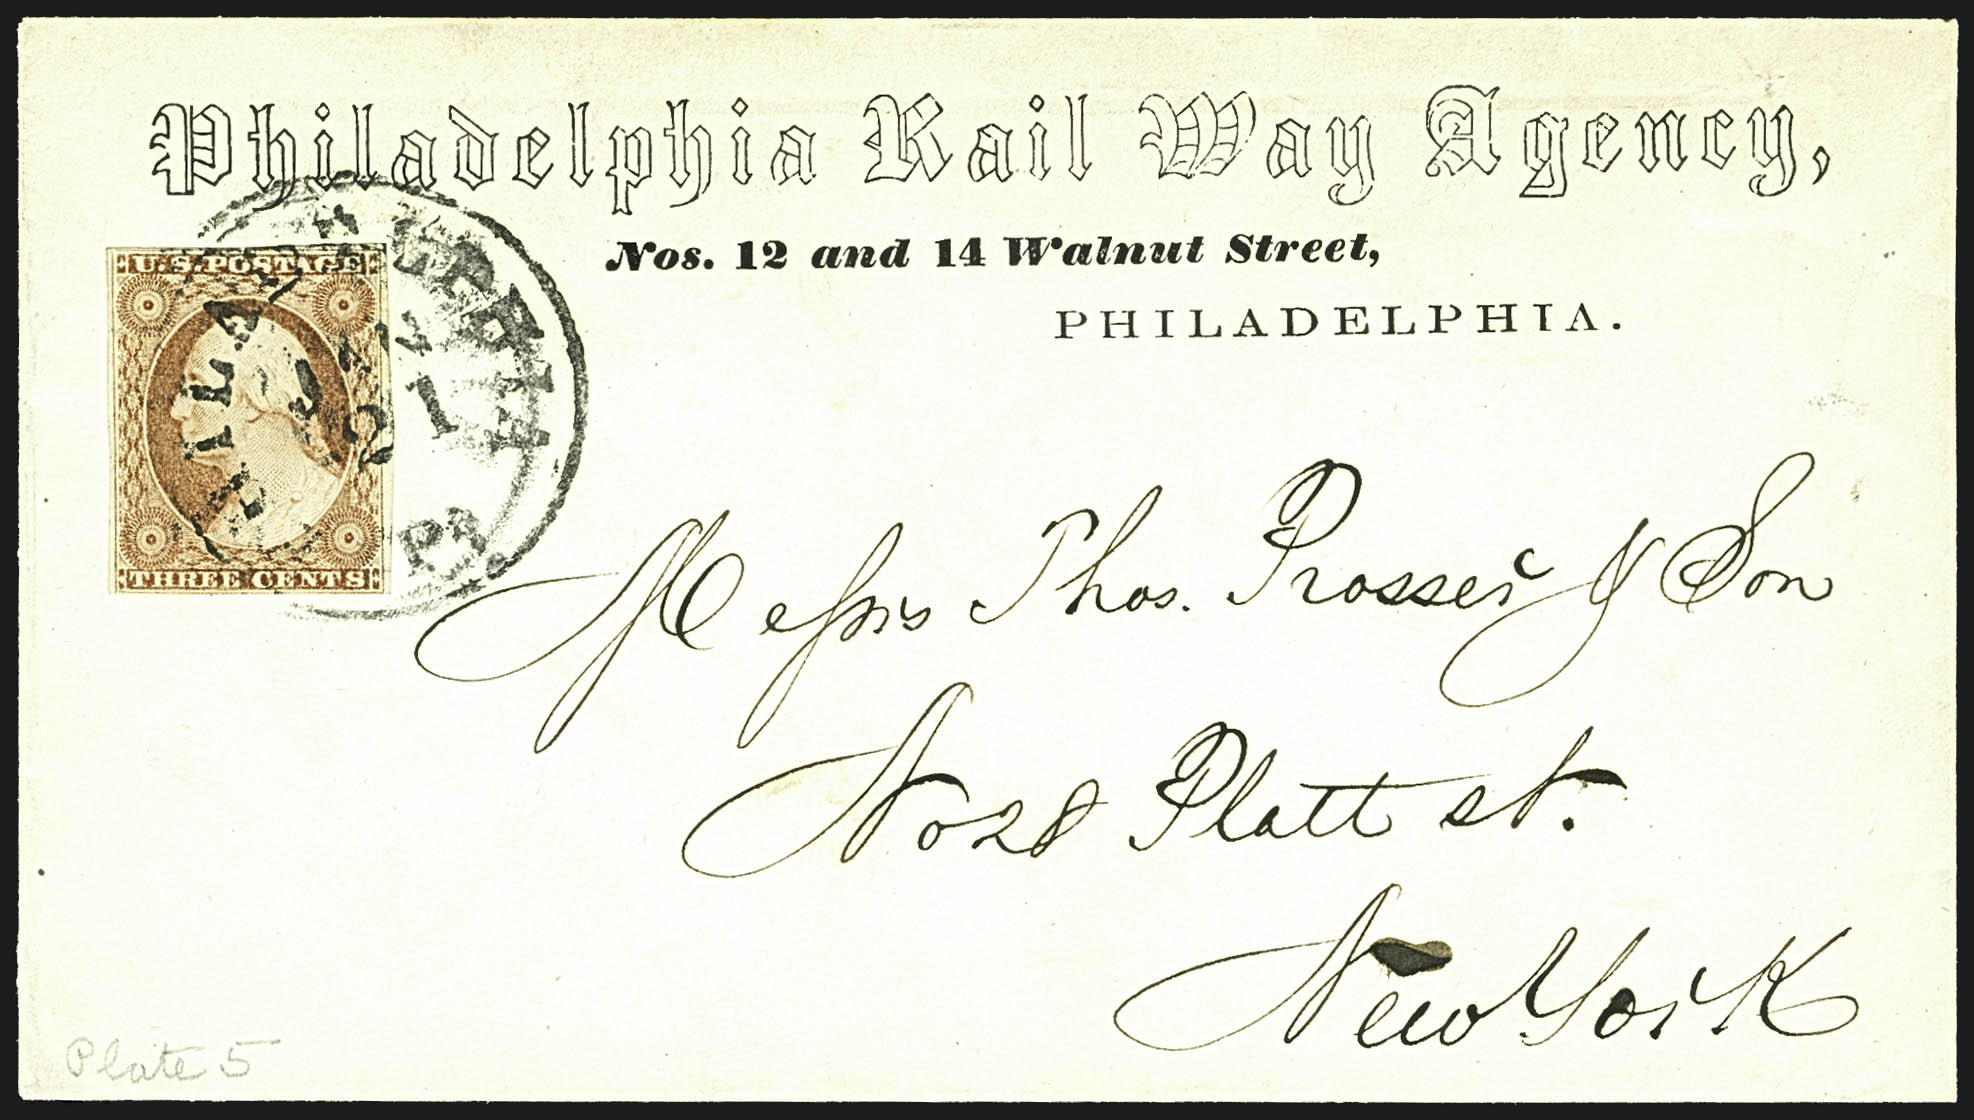 Philadelphia Rail Way Agency,
Nos. 12 and 14 Walnut Street,
PHILADELPHIA.
U.S. POSTAGE
THREE CENTS
PHILADELPHIA
JAN
21
Pa.
Messrs Thos. Prosser & Son
No 28 Platt st.
New York
Plate 5